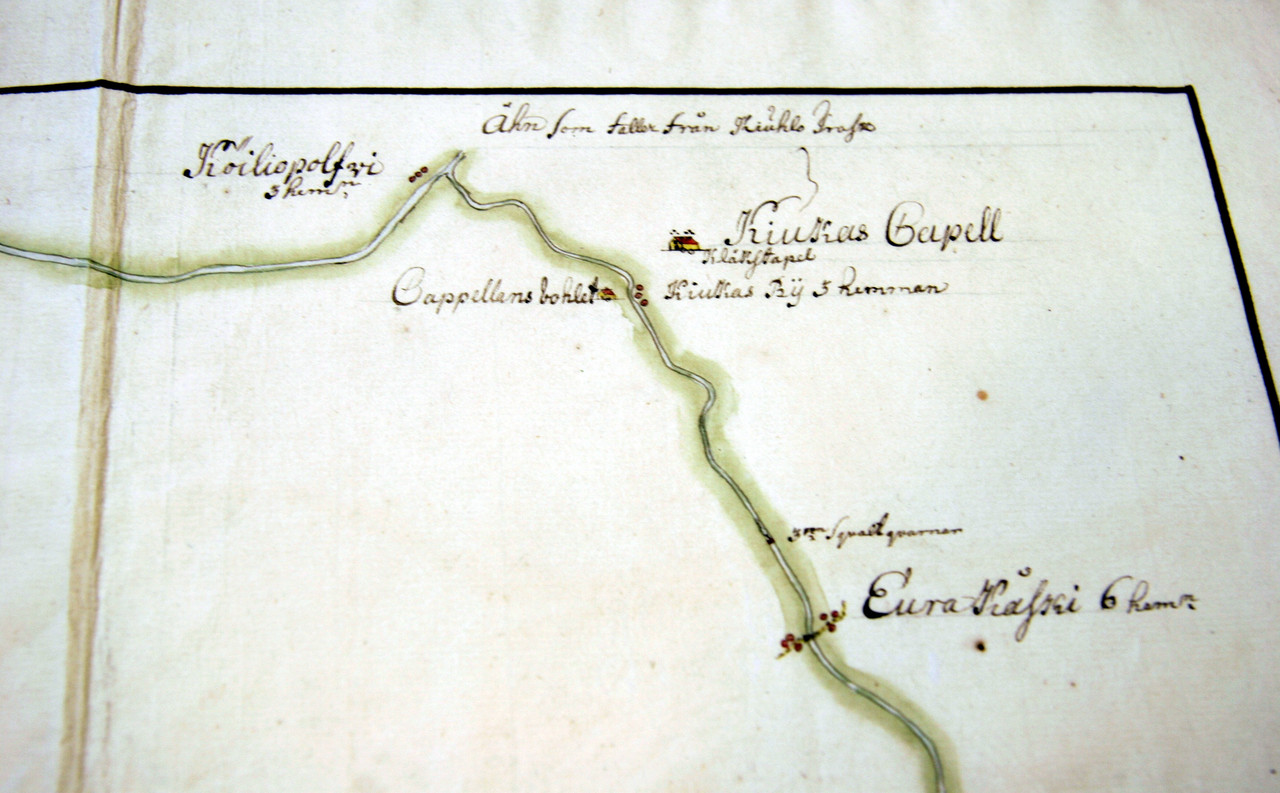 Åhn som faller från Kiuhlo Trask
Köiliopolfvi
3 hemn
Kiukas Capell
Klåkstapel
Cappellans bohlet
Kiukas Bÿ 5 hemman
3n Sqvaltqvarnar
Eura Kåski 6 hemn